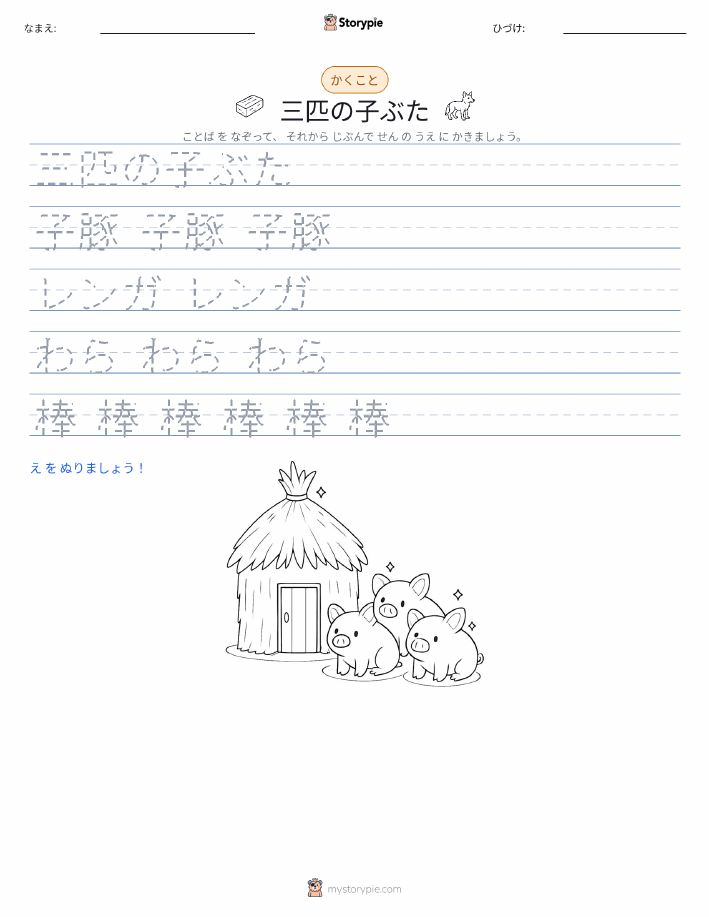 なまえ:
Storypie
ひづけ:
かくこと
三匹の子ぶた
ことば を なぞって、 それから じぶんで せん の うえ に かきましょう。
三匹の子ぶた
子豚 子豚 子豚
レンガ レンガ
わら わら わら
棒 棒 棒 棒 棒 棒
え を ぬりましょう！
mystorypie.com